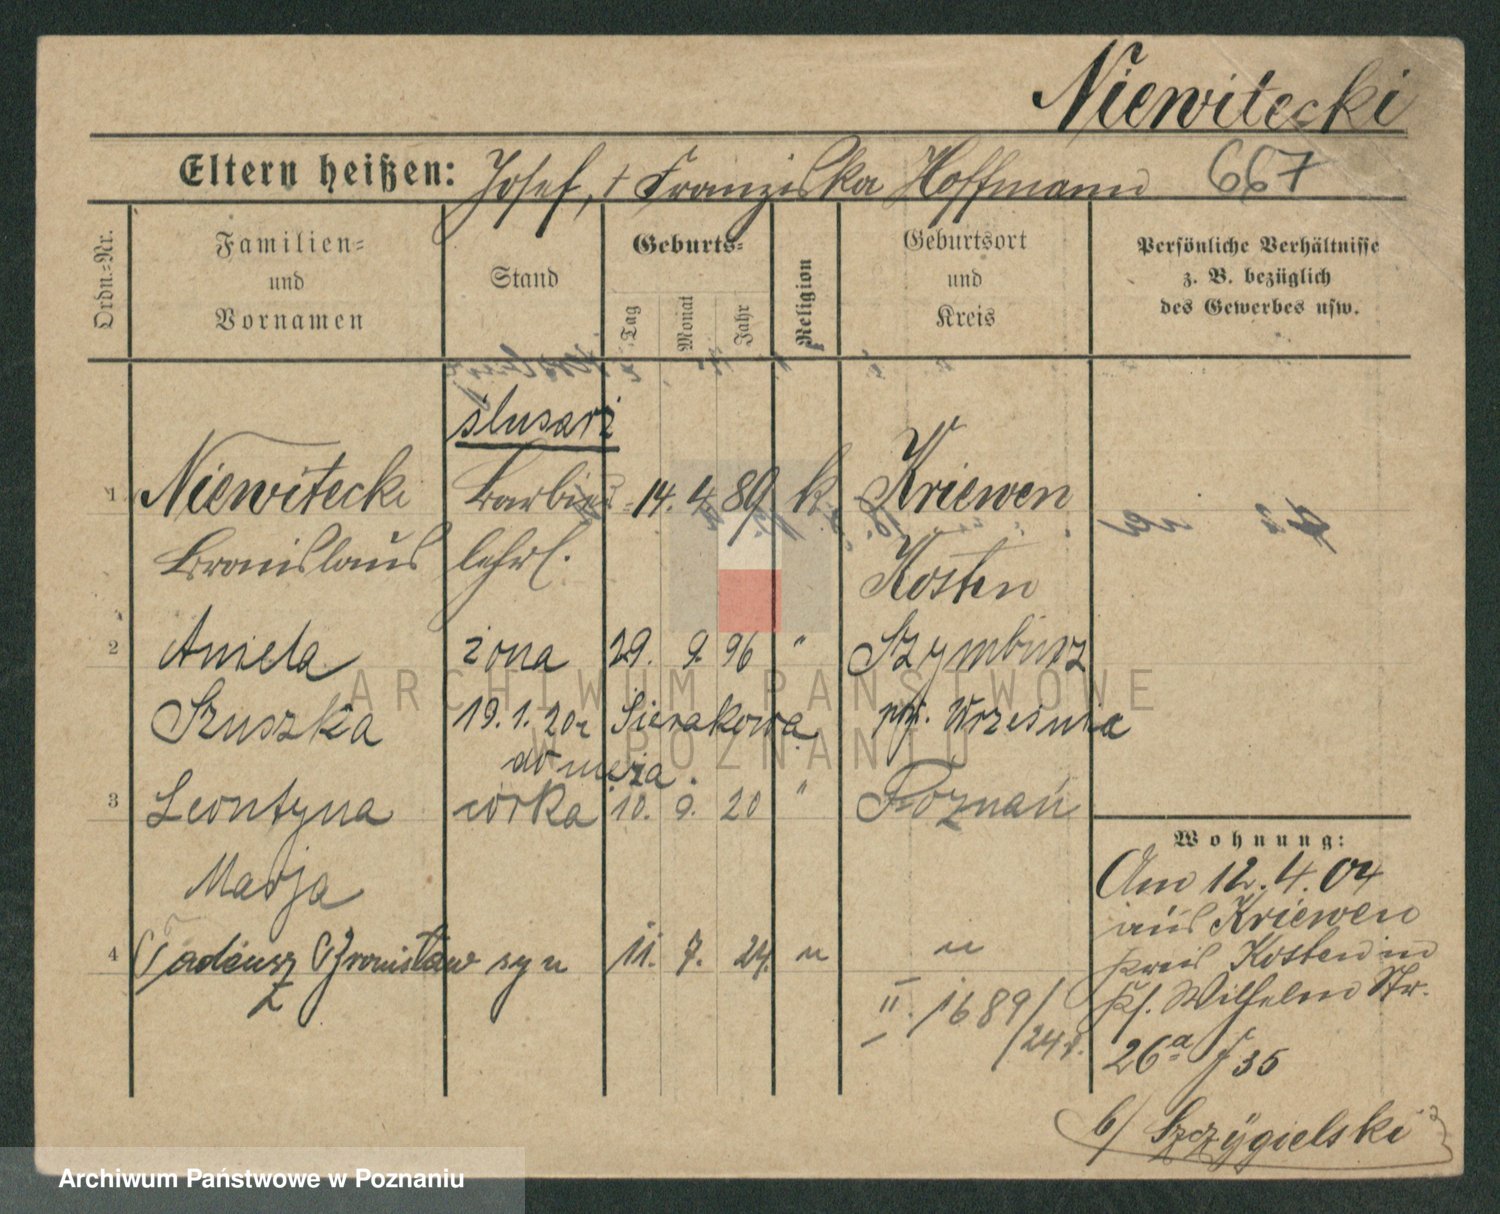 Niewitecki
Eltern heißen: Josef, † Franziska Hoffmann 667
Ordn.=Nr.
Familien=
und
Vornamen
Stand
Geburts=
Tag
Monat
Jahr
Religion
Geburtsort
und
Kreis
Persönliche Verhältnisse
z. B. bezüglich
des Gewerbes usw.
ślusarz
1 Niewitecki Barbier= 14. 4. 89 k. Kriewen
Bronislaus lehrl. Kosten
2 Aniela żona 29. 9. 96 " 
Szuszka 19.1.20 Sierakowa pow. Września
do męża.
3 Leontyna córka 10. 9. 20 " Poznań
Marja
4 Tadeusz Bronisław syn 11. 7. 24. " "
II. 1689/24
Wohnung:
Am 12.4.04
aus Kriewen
Kreis Kosten in
Wilhelm Str.
26a 35
b/ Szczygielski
ARCHIWUM PAŃSTWOWE
W POZNANIU
Archiwum Państwowe w Poznaniu